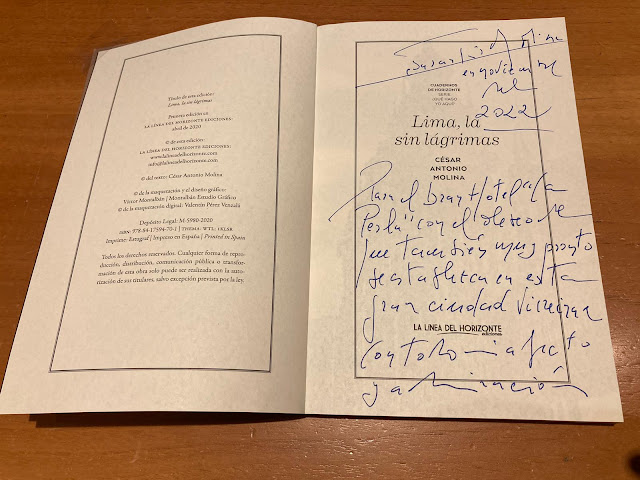 Título de esta edición:
Lima, la sin lágrimas
Primera edición en
LA LÍNEA DEL HORIZONTE EDICIONES:
abril de 2020
© de esta edición:
LA LÍNEA DEL HORIZONTE EDICIONES:
www.lalineadelhorizonte.com
info@lalineadelhorizonte.com
© del texto: César Antonio Molina
© de la maquetación y el diseño gráfico:
Víctor Montalbán | Montalbán Estudio Gráfico
© de la maquetación digital: Valentín Pérez Venzalá
Depósito Legal: M-5980-2020
ISBN: 978-84-17594-70-1 | THEMA: WTL; 1KLSR
Imprime: Estugraf | Impreso en España | Printed in Spain
Todos los derechos reservados. Cualquier forma de repro-
ducción, distribución, comunicación pública o transfor-
mación de esta obra solo puede ser realizada con la auto-
rización de sus titulares, salvo excepción prevista por la ley.
2022
CUADERNOS
DE HORIZONTE
SERIE
¿QUÉ HAGO
YO AQUÍ?
Lima, la
sin lágrimas
CÉSAR
ANTONIO
MOLINA
Para el Gran Hotel "La
Perla" con el deseo de
que también muy pronto
se establezca en esta
gran ciudad virreinal
LA LÍNEA DEL HORIZONTE
ediciones
con todo mi afecto
y admiración